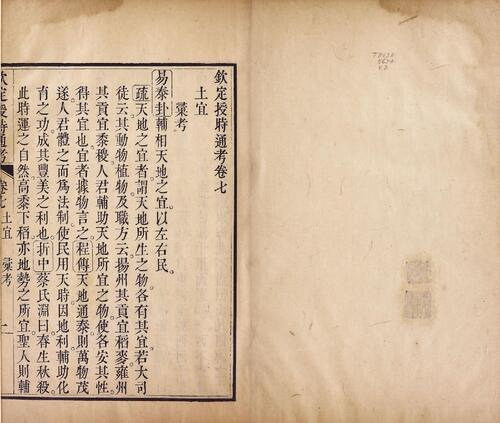 欽定授時通考卷七
土宜
彙考
易泰卦輔相天地之宜以左右民。
疏天地之宜者謂天地所生之物各有其宜若大司
徒云其動物植物及職方云揚州其貢宜稻麥雍州
其貢宜黍稷人君輔助天地所宜之物使各安其性
得其宜也宜者據物言之程傳天地通泰則萬物茂
遂人君體之而爲法制使民用天時因地利輔助化
育之功成其豐美之利也折中蔡氏淵曰春生秋殺
此時運之自然高黍下稻亦地勢之所宜聖人則輔
欽定授時通考
卷七 土宜 彙考 一